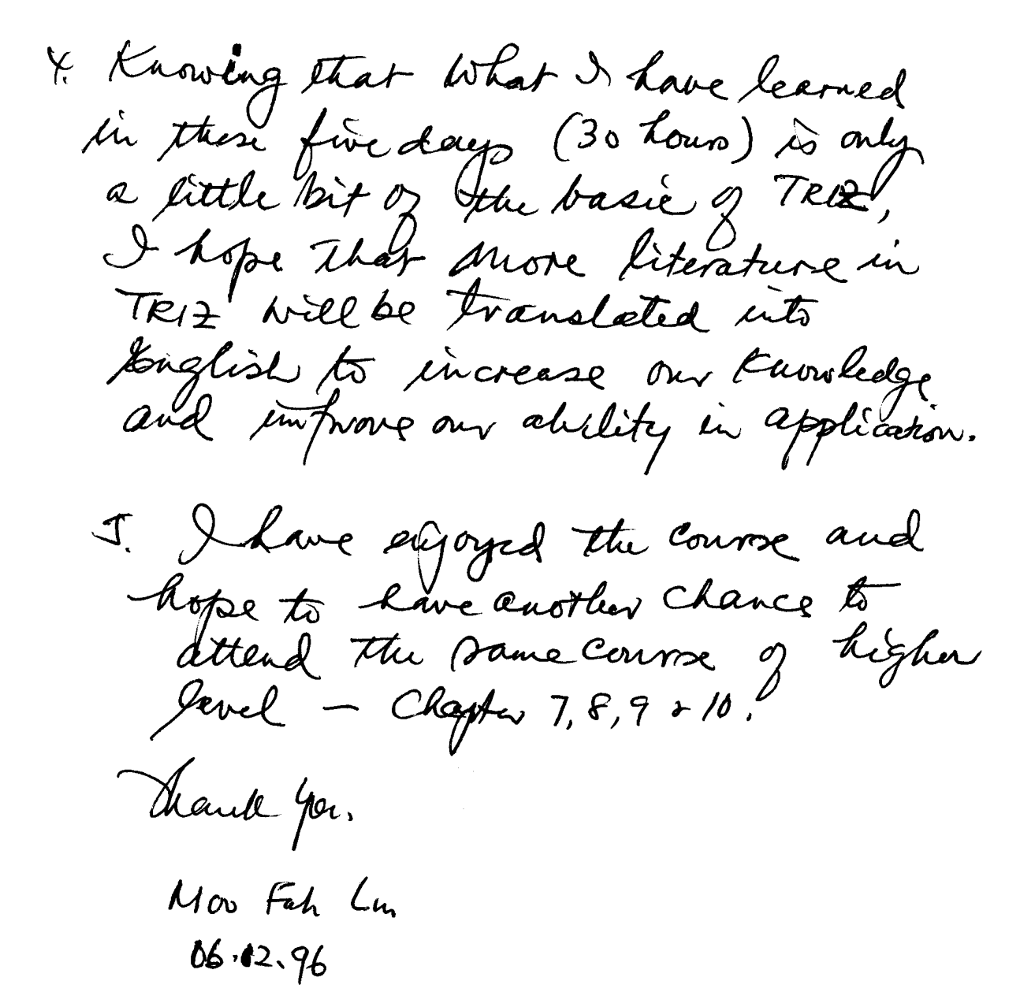 4. Knowing that what I have learned
in these five days (30 hours) is only
a little bit of the basic of TRIZ,
I hope that more literature in
TRIZ will be translated into
English to increase our knowledge
and improve our ability in application.
5. I have enjoyed the course and
hope to have another chance to
attend the same course of higher
level - Chapter 7, 8, 9 & 10.
Thank you.
Moo Fah
06.12.96